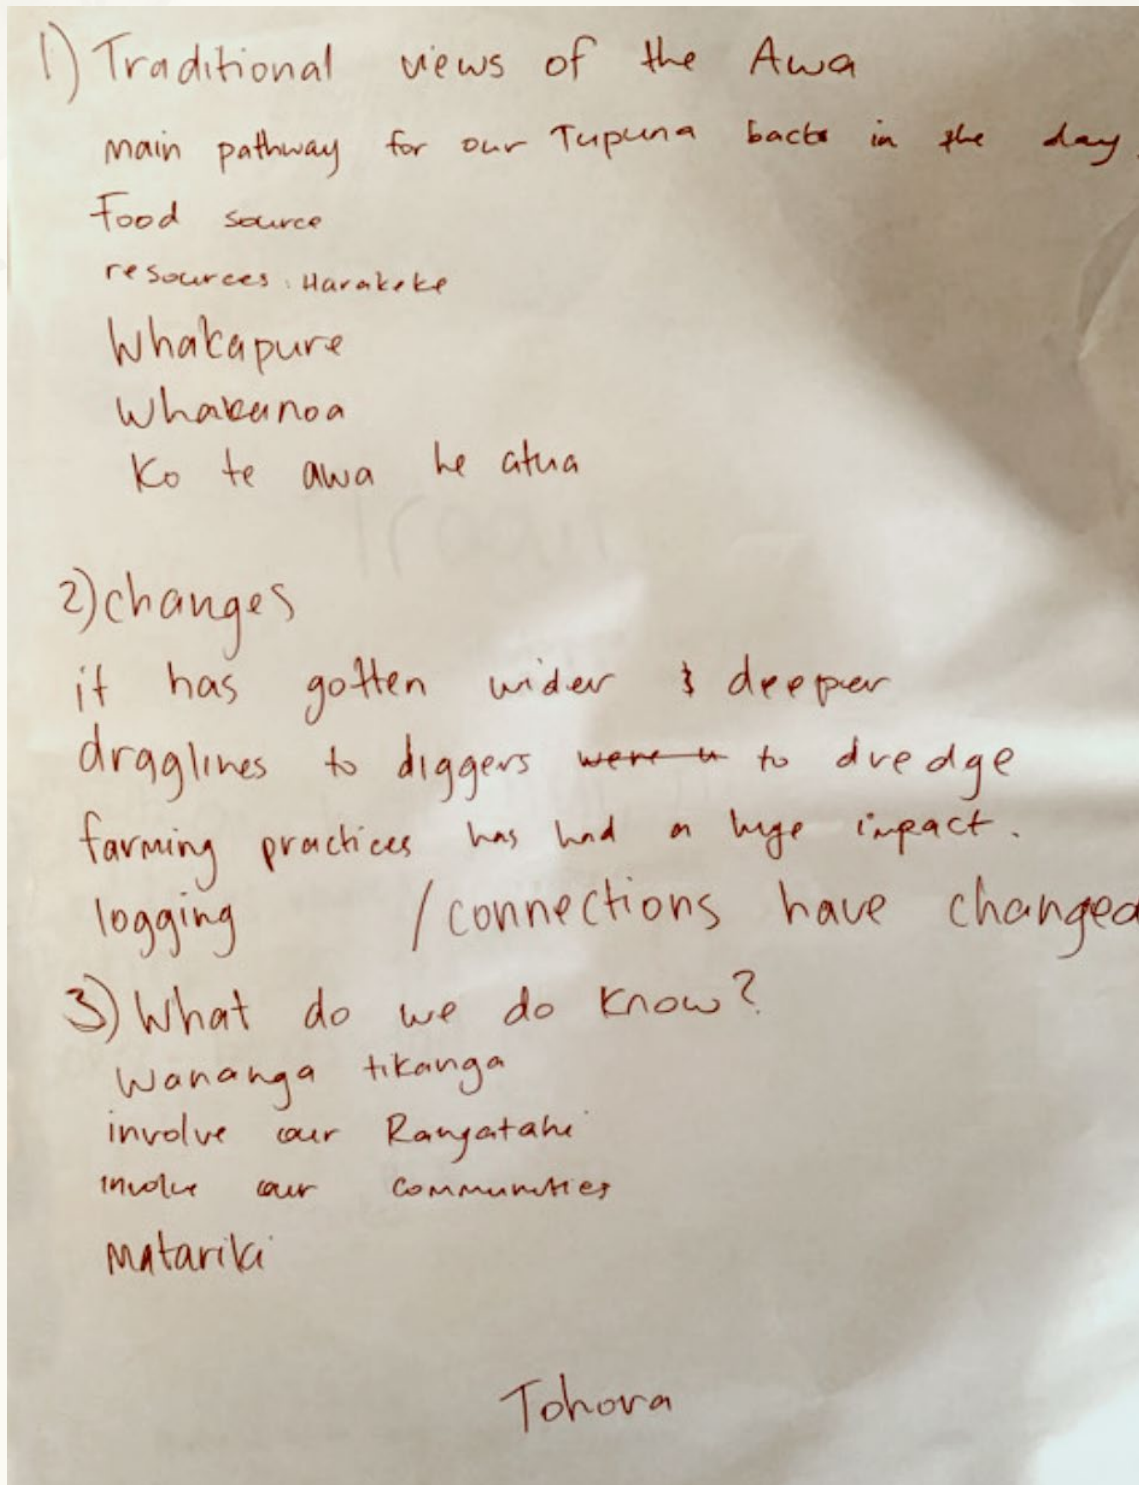 1) Traditional views of the Awa
main pathway for our Tupuna back in the day.
Food source
resources. Harakeke
Whakapure
Whakanoa
Ko te awa he atua
2) changes
it has gotten wider & deeper
draglines to diggers were u to dredge
farming practices has had a huge impact.
logging / connections have changed
3) What do we do know?
Wananga tikanga
involve our Rangatahi
involve our communities
Matariki
Tohora